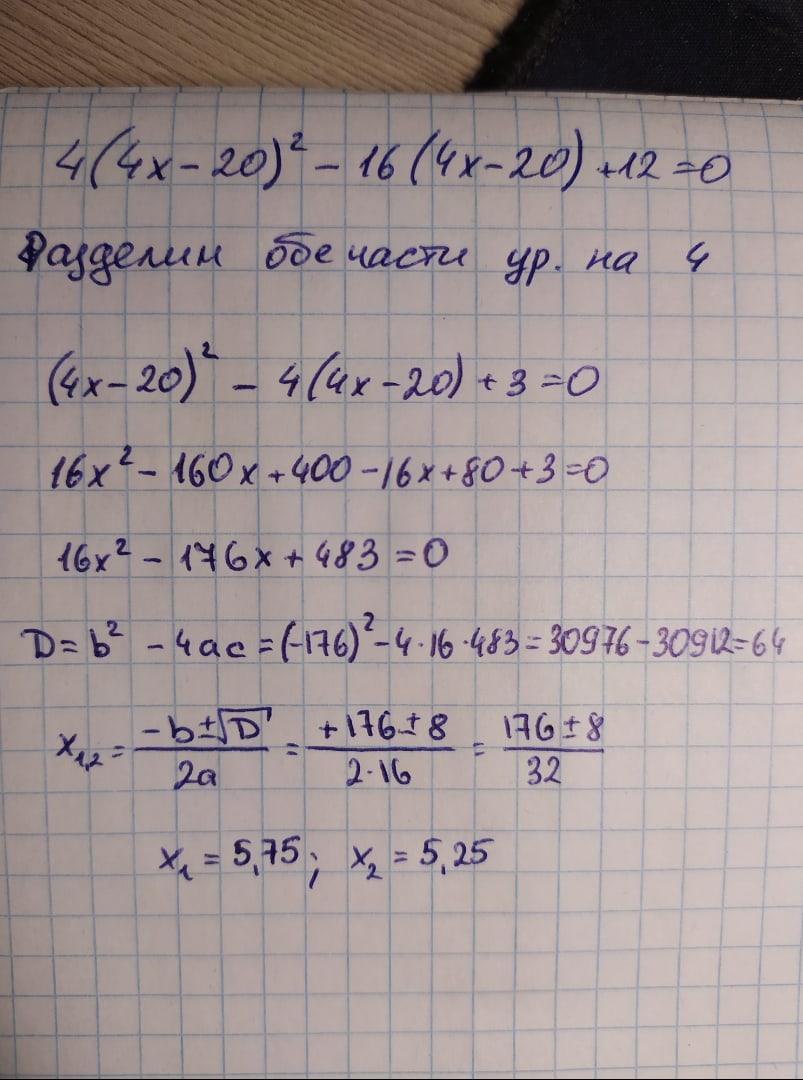 4(4x-20)² - 16(4x-20) +12=0
Разделим обе части ур. на 4
(4x-20)² - 4(4x-20) + 3 = 0
16x² - 160x + 400 - 16x + 80 + 3 = 0
16x² - 176x + 483 = 0
D = b² - 4ac = (-176)² - 4·16·483 = 30976 - 30912 = 64
x₁,₂ = (-b±√D)/(2a) = (+176±8)/(2·16) = (176±8)/32
x₁ = 5,75; x₂ = 5,25